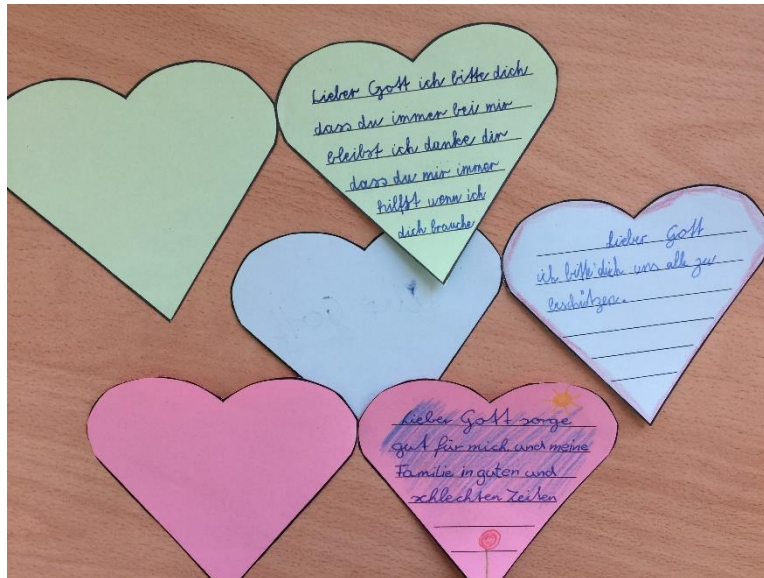 Lieber Gott ich bitte dich
dass du immer bei mir
bleibst ich danke dir
dass du mir immer
hilfst wenn ich
dich brauche
Lieber Gott
ich bitte dich uns alle zu
beschützen.
Lieber Gott sorge
gut für mich und meine
Familie in guten und
schlechten Zeiten